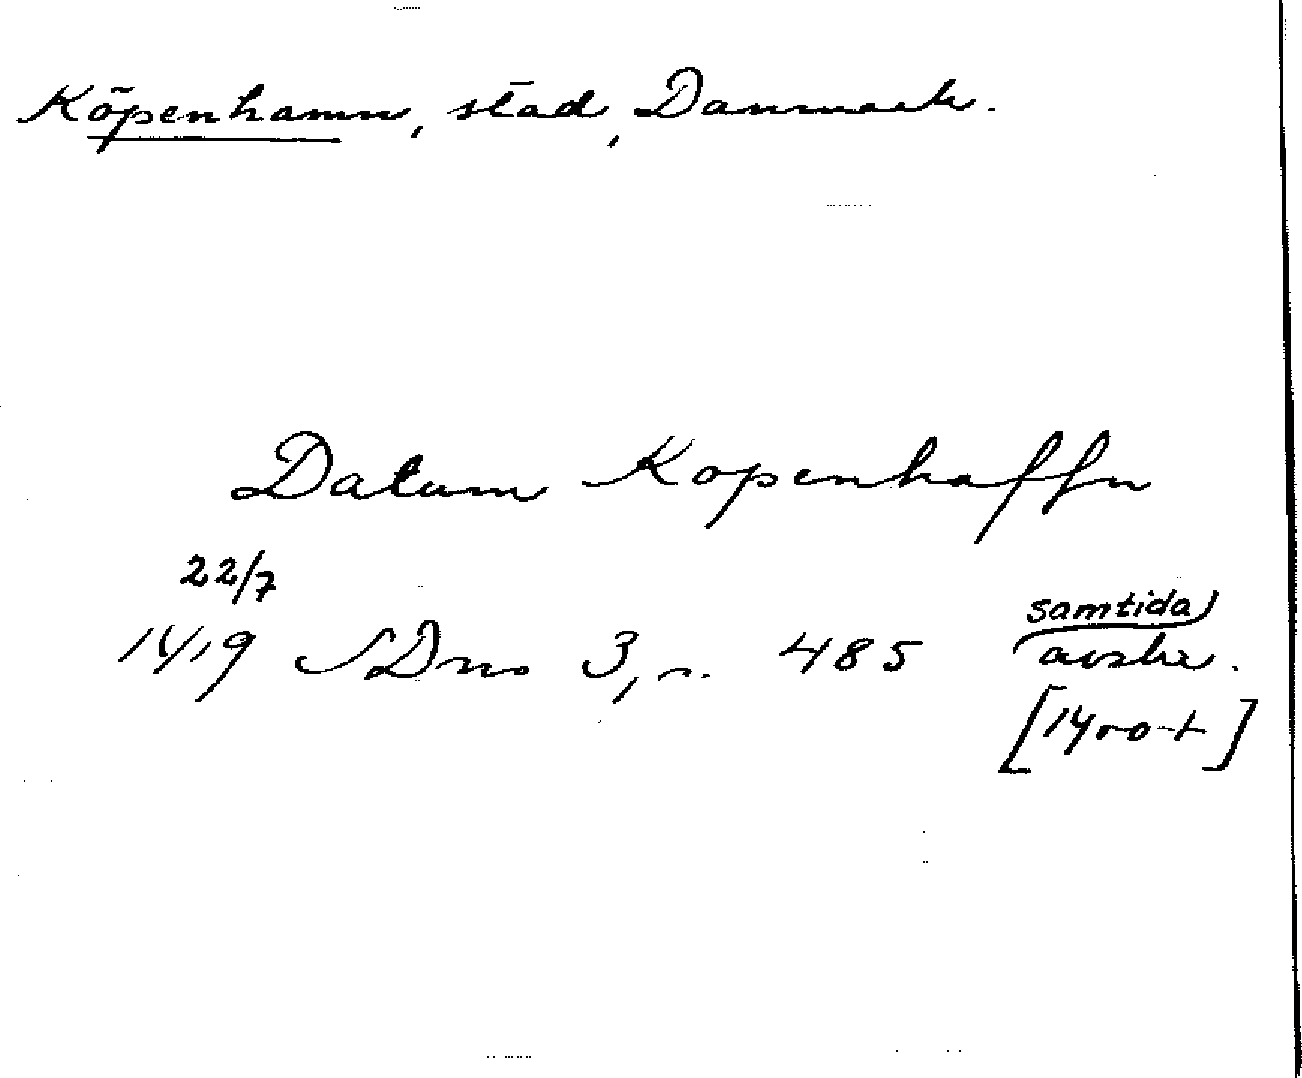 Köpenhamn, stad, Danmark.
Datum Kopenhaffn
22/7
1419 SDns 3, s. 485 samtida
avskr.
[1400-t]